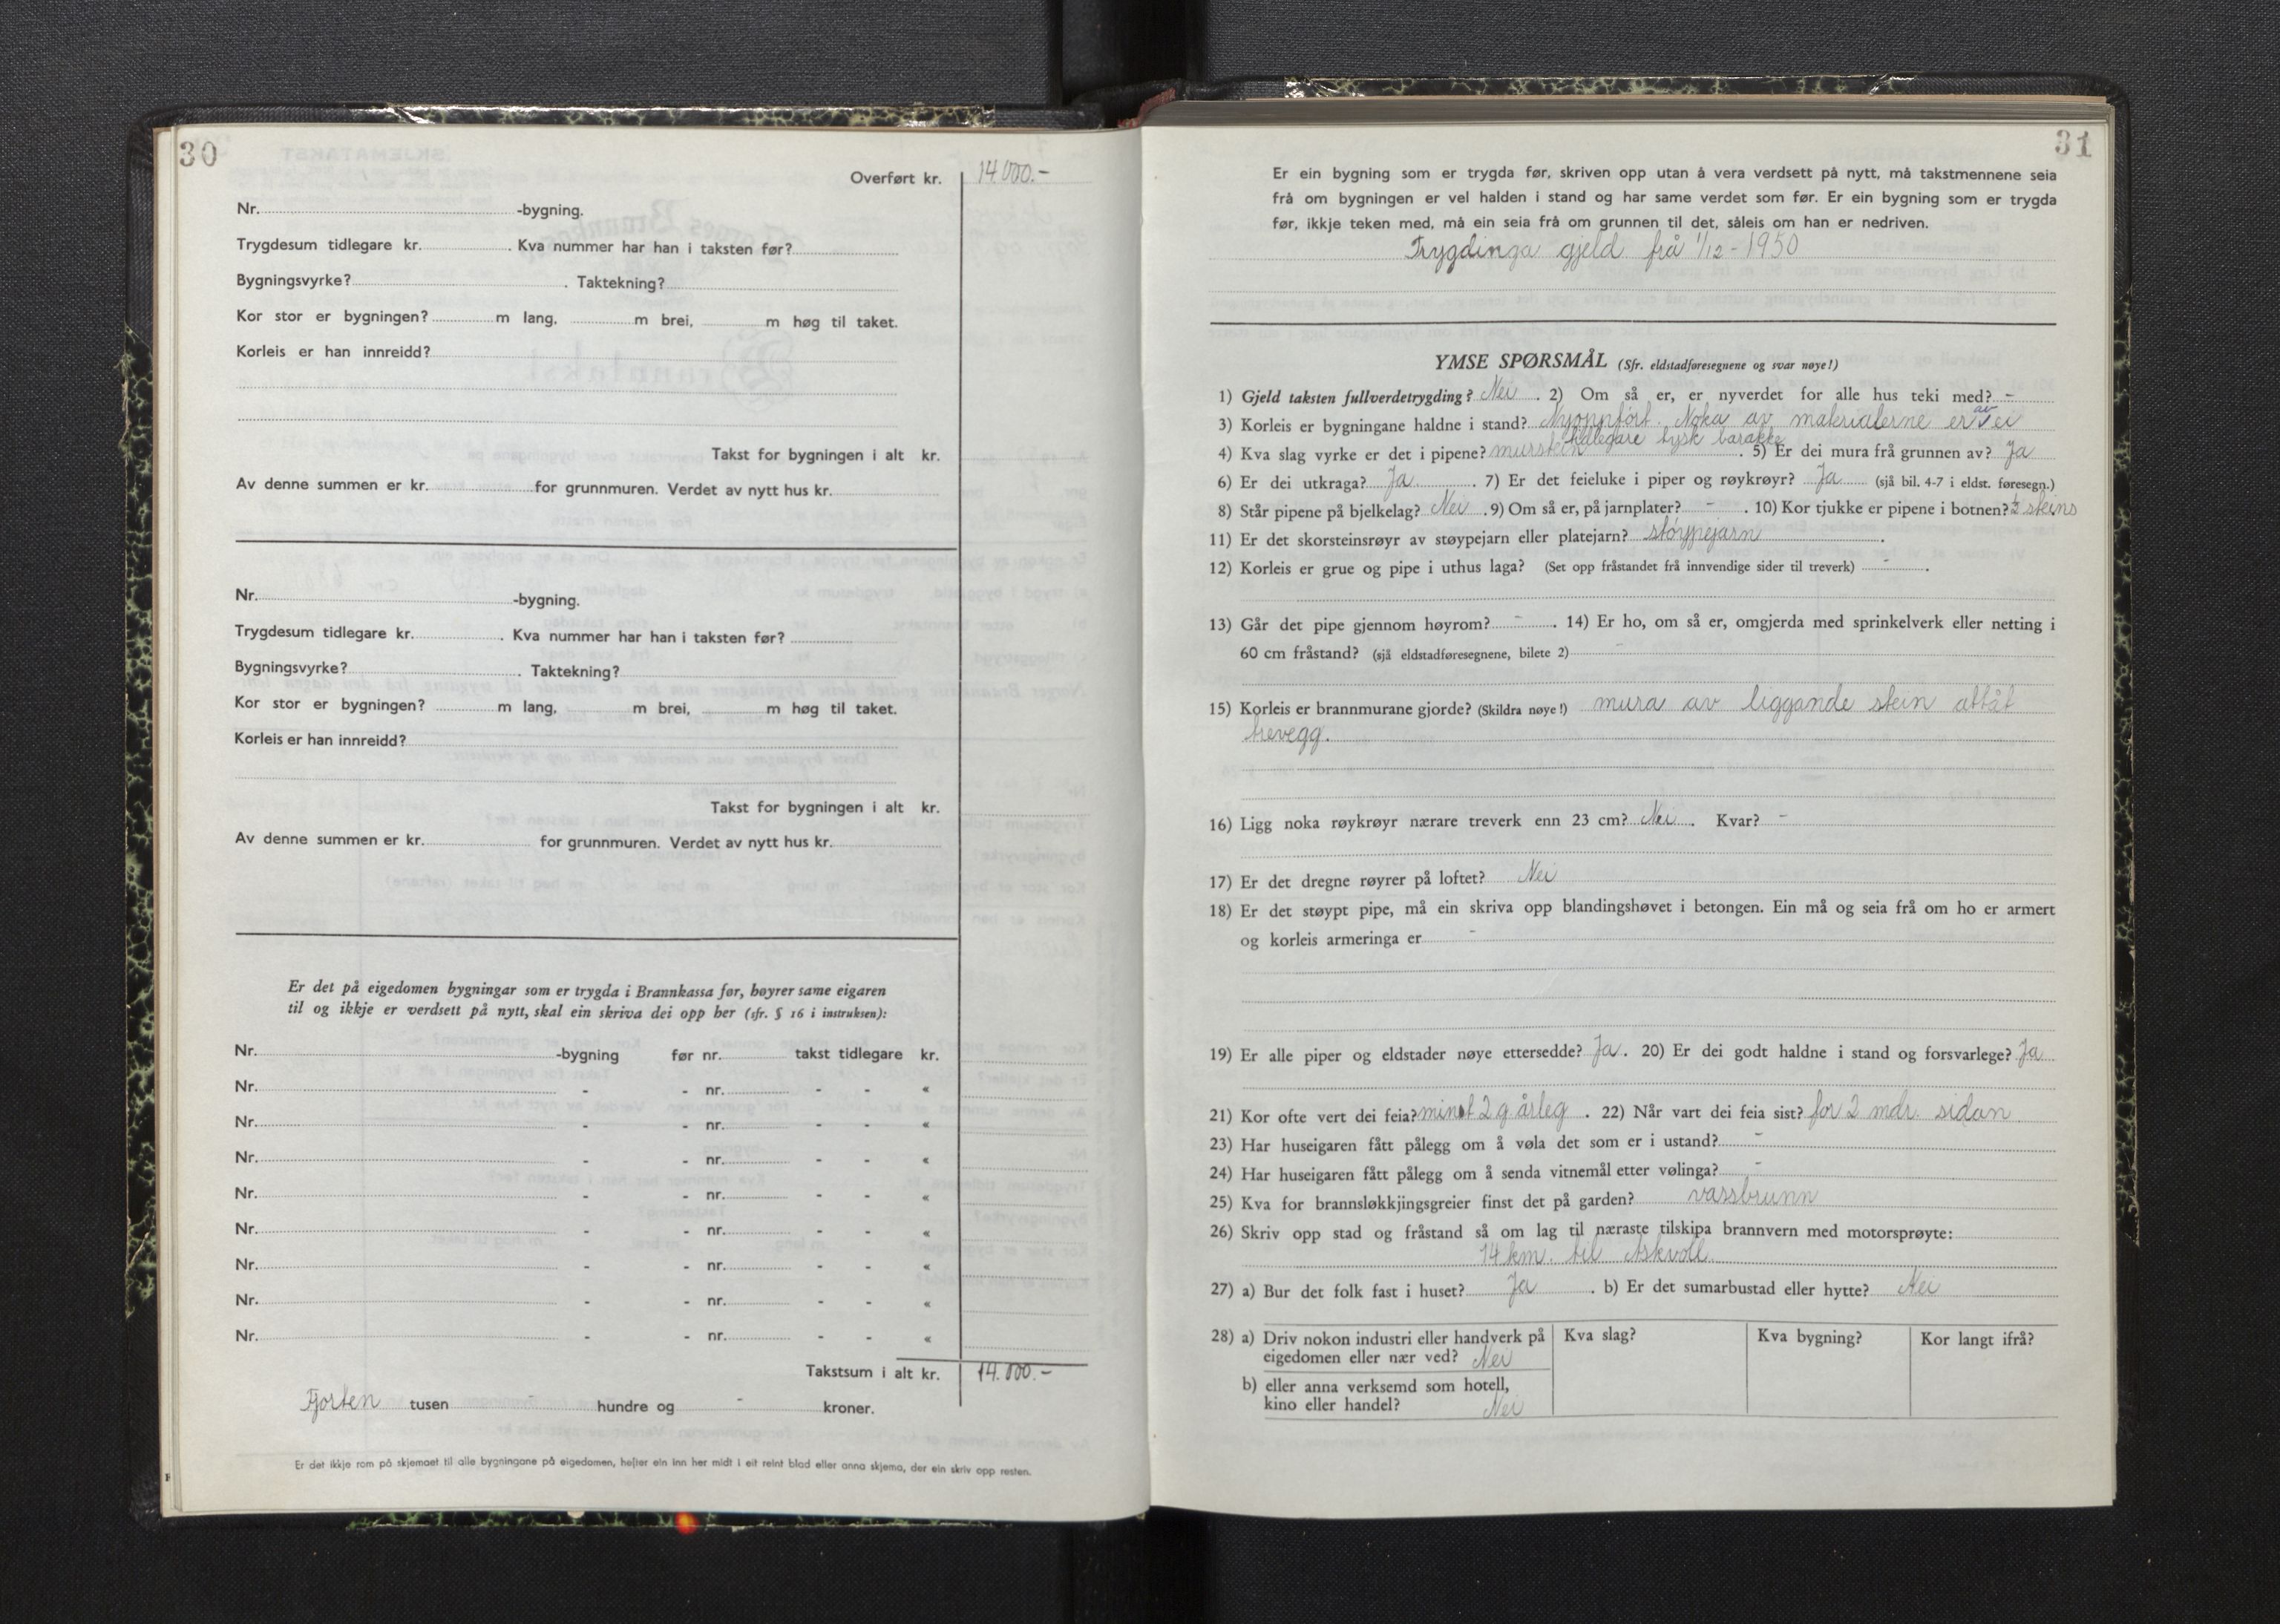 30
Overført kr. 14.000.-
Nr. -bygning.
Trygdesum tidlegare kr. . Kva nummer har han i taksten før?
Bygningsvyrke? . Taktekning?
Kor stor er bygningen? m lang, m brei, m høg til taket.
Korleis er han innreidd?
Takst for bygningen i alt kr.
Av denne summen er kr. for grunnmuren. Verdet av nytt hus kr.
Nr. -bygning.
Trygdesum tidlegare kr. . Kva nummer har han i taksten før?
Bygningsvyrke? . Taktekning?
Kor stor er bygningen? m lang, m brei, m høg til taket.
Korleis er han innreidd?
Takst for bygningen i alt kr.
Av denne summen er kr. for grunnmuren. Verdet av nytt hus kr.
Er det på eigedomen bygningar som er trygda i Brannkassa før, høyrer same eigaren
til og ikkje er verdsett på nytt, skal ein skriva dei opp her (sfr. § 16 i instruksen):
Nr. -bygning før nr. takst tidlegare kr.
Nr. - - nr. - - «
Nr. - - nr. - - «
Nr. - - nr. - - «
Nr. - - nr. - - «
Nr. - - nr. - - «
Nr. - - nr. - - «
Nr. - - nr. - - «
Nr. - - nr. - - «
Takstsum i alt kr. 14.000.-
Fjorten tusen - hundre og - kroner.
Er det ikkje rom på skjemaet til alle bygningane på eigedomen, hefter ein inn her midt i eit reint blad eller anna skjema, der ein skriv opp resten.
31
Er ein bygning som er trygda før, skriven opp utan å vera verdsett på nytt, må takstmennene seia
frå om bygningen er vel halden i stand og har same verdet som før. Er ein bygning som er trygda
før, ikkje teken med, må ein seia frå om grunnen til det, såleis om han er nedriven.
Trygdinga gjeld frå 1/12-1950
YMSE SPØRSMÅL (Sfr. eldstadføresegnene og svar nøye!)
1) Gjeld taksten fullverdetrygding? Nei . 2) Om så er, er nyverdet for alle hus teki med? -
3) Korleis er bygningane haldne i stand? Nyoppført. Noka av materialerne er av ei
tidlegare tysk barakke
4) Kva slag vyrke er det i pipene? murstein . 5) Er dei mura frå grunnen av? Ja
6) Er dei utkraga? Ja . 7) Er det feieluke i piper og røykrøyr? Ja (sjå bil. 4-7 i eldst. føresegn.)
8) Står pipene på bjelkelag? Nei . 9) Om så er, på jarnplater? - . 10) Kor tjukke er pipene i botnen? ½ steins
11) Er det skorsteinsrøyr av støypejarn eller platejarn? støypejarn .
12) Korleis er grue og pipe i uthus laga? (Set opp fråstandet frå innvendige sider til treverk) - .
13) Går det pipe gjennom høyrom? - . 14) Er ho, om så er, omgjerda med sprinkelverk eller netting i
60 cm fråstand? (sjå eldstadføresegnene, bilete 2) -
15) Korleis er brannmurane gjorde? (Skildra nøye!) mura av liggande stein attåt
trevegg.
16) Ligg noka røykrøyr nærare treverk enn 23 cm? Nei . Kvar? -
17) Er det dregne røyrer på loftet? Nei
18) Er det støypt pipe, må ein skriva opp blandingshøvet i betongen. Ein må og seia frå om ho er armert
og korleis armeringa er -
19) Er alle piper og eldstader nøye ettersedde? Ja . 20) Er dei godt haldne i stand og forsvarlege? Ja
21) Kor ofte vert dei feia? minst 2 g årleg . 22) Når vart dei feia sist? for 2 mdr. sidan
23) Har huseigaren fått pålegg om å vøla det som er i ustand? -
24) Har huseigaren fått pålegg om å senda vitnemål etter vølinga? -
25) Kva for brannsløkkjingsgreier finst det på garden? vassbrunn
26) Skriv opp stad og fråstand så om lag til næraste tilskipa brannvern med motorsprøyte:
14 km. til Askvoll
27) a) Bur det folk fast i huset? Ja . b) Er det sumarbustad eller hytte? Nei
28) a) Driv nokon industri eller handverk på Kva slag? Kva bygning? Kor langt ifrå?
eigedomen eller nær ved? Nei
b) eller anna verksemd som hotell,
kino eller handel? Nei